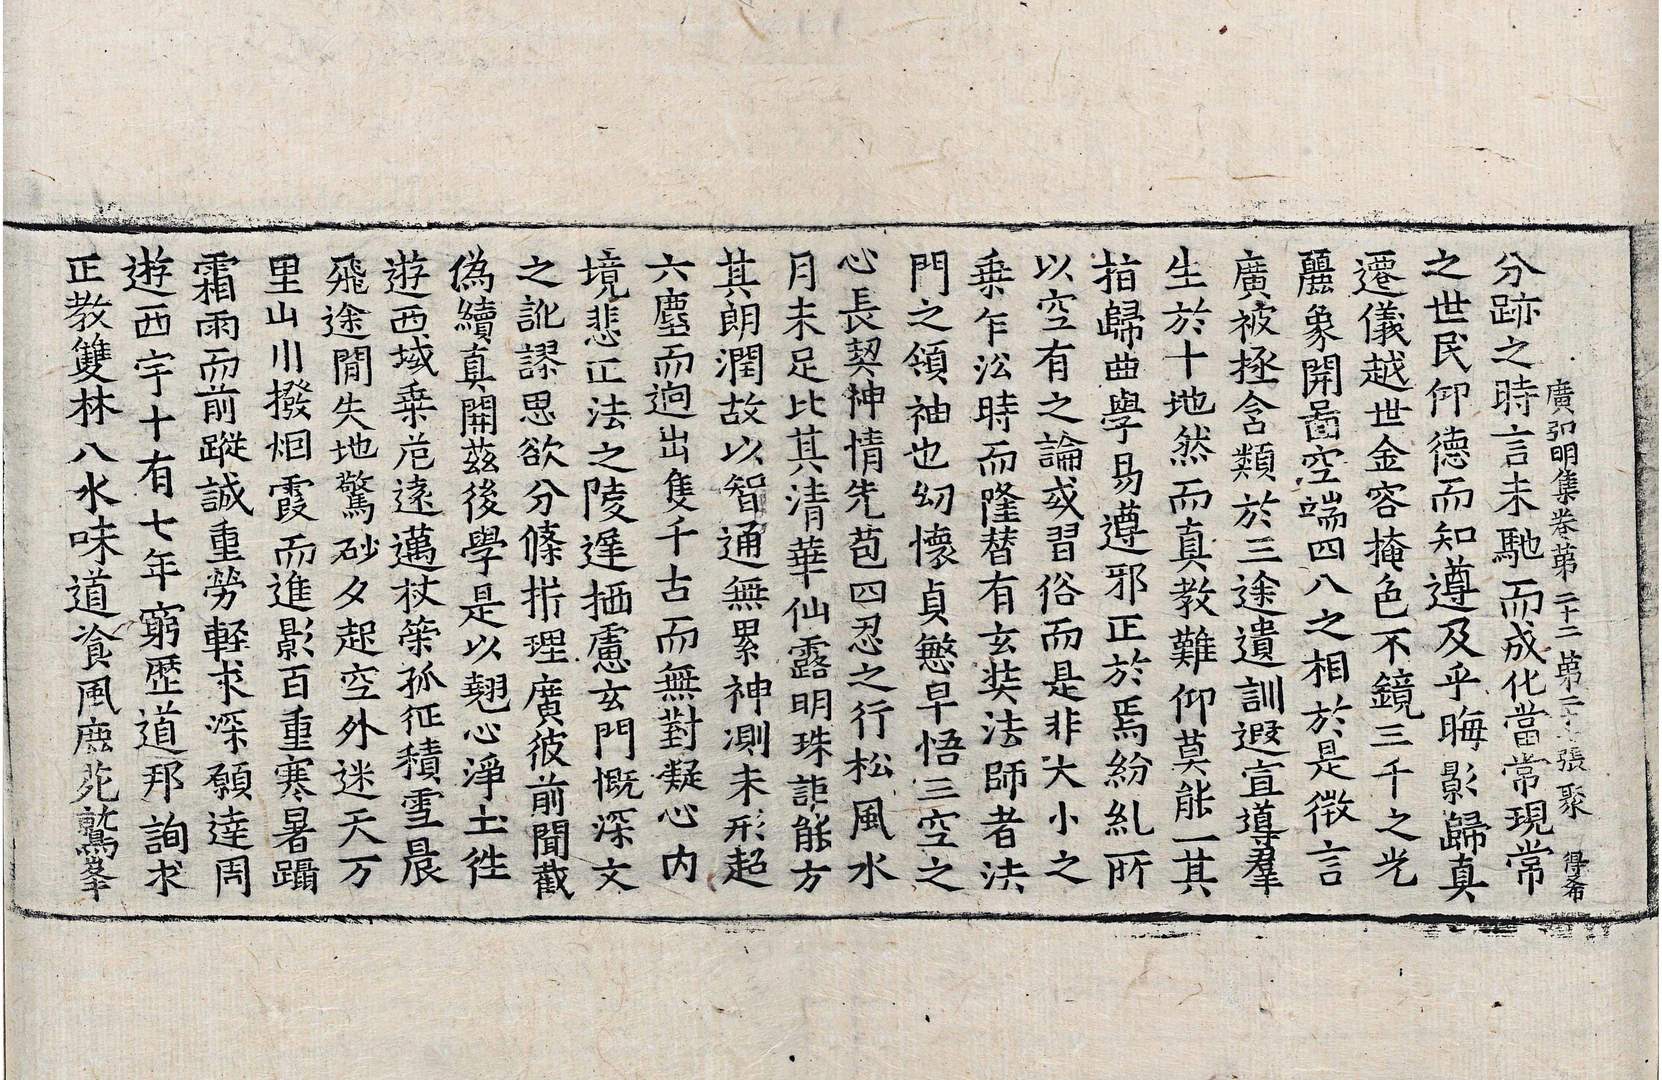 廣弘明集卷第二十二 第二 張 聚 得希
分跡之時言未馳而成化當常現常
之世民仰德而知遵及乎晦影歸真
遷儀越世金容掩色不鏡三千之光
麗象開圖空端四八之相於是微言
廣被拯含類於三途遺訓遐宣導羣
生於十地然而真教難仰莫能一其
指歸曲學易遵邪正於焉紛乿所
以空有之論或習俗而是非大小之
乗乍㳂時而隆替有玄奘法師者法
門之領袖也幼懷貞慜早悟三空之
心長契神情先苞四忍之行松風水
月未足比其清華仙露明珠詎能方
其朗潤故以智通無累神測未形超
六塵而逈出隻千古而無對凝心內
境悲正法之陵遅栖慮玄門慨深文
之訛謬思欲分條㭊理廣彼前聞截
偽續真開茲後學是以翹心淨土徃
遊西域乗危遠邁杖策孤征積雪晨
飛途閒失地驚砂夕起空外迷天万
里山川撥烟霞而進影百重寒暑躡
霜雨而前蹤誠重勞軽求深願達周
遊西宇十有七年窮歴道邦詢求
正教雙林八水味道飡風鹿菀鷲峯